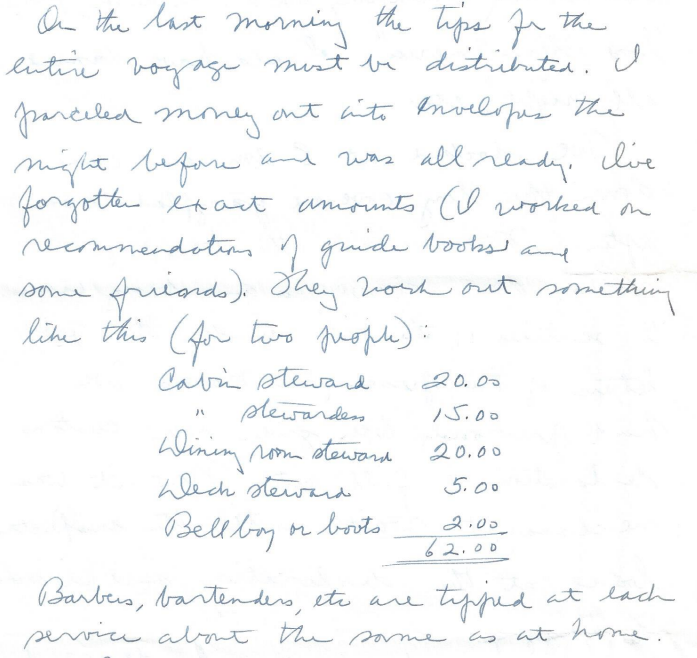 On the last morning the tips for the
entire voyage must be distributed. I
parceled money out into envelopes the
night before and was all ready. I've
forgotten exact amounts (I worked on
recommendations of guide books and
some friends). They work out something
like this (for two people):
Cabin steward 20.00
" stewardess 15.00
Dining room steward 20.00
Deck steward 5.00
Bellboy or boots 2.00
62.00
Barbers, bartenders, etc are tipped at each
service about the same as at home.